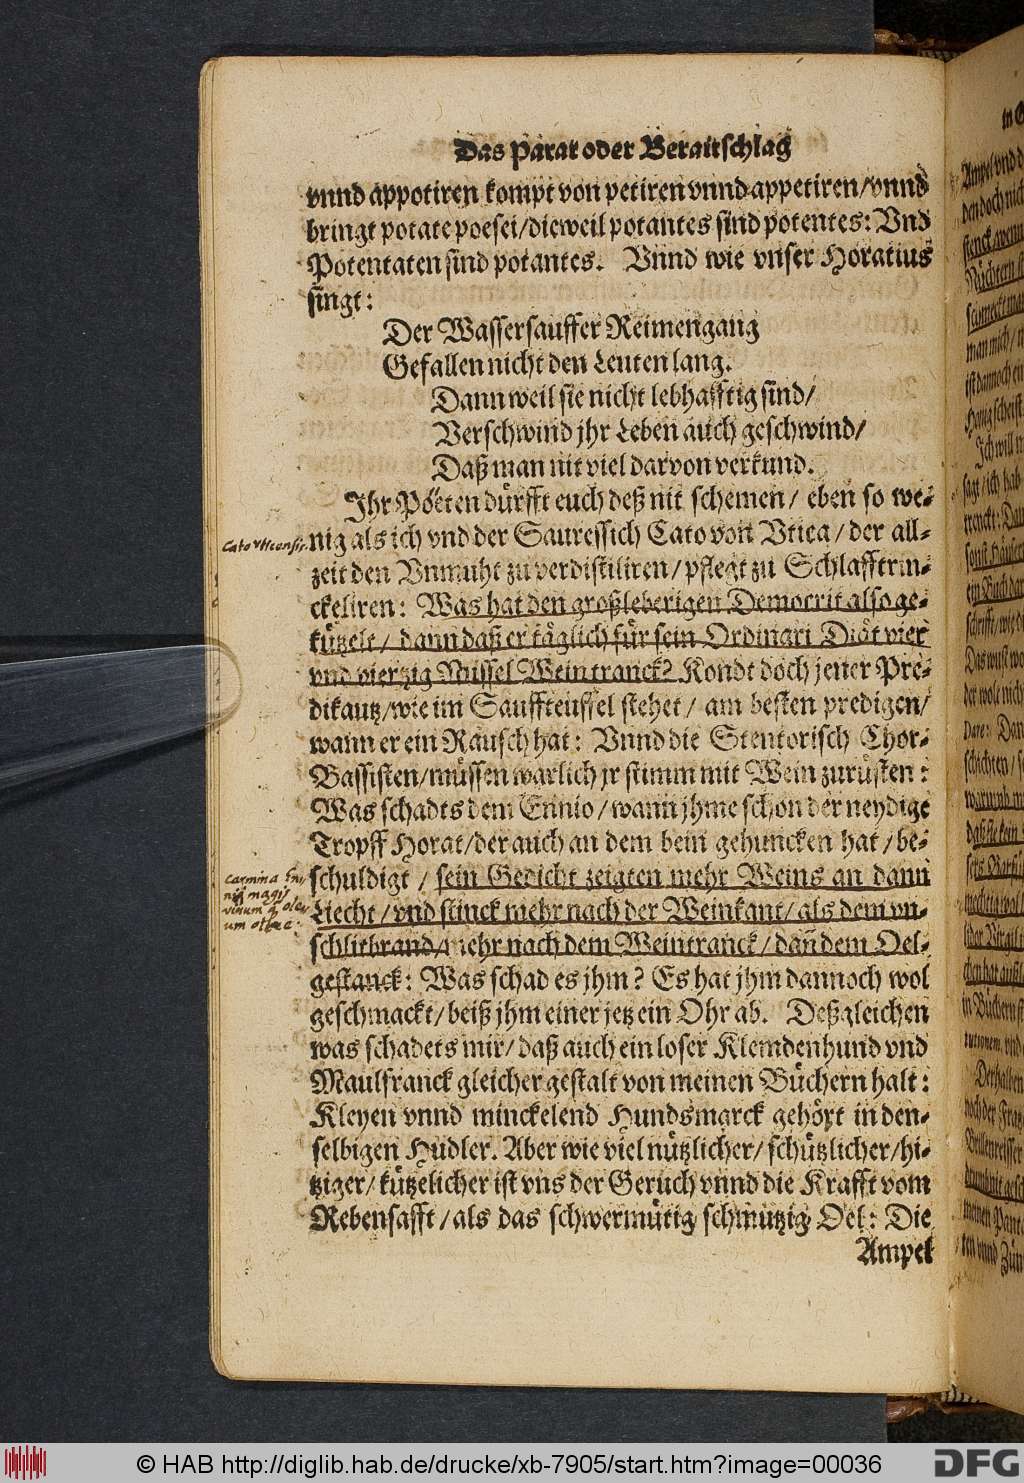 Das Parat oder Beraitschlag
vnnd appotiren kompt von petiren vnnd appetiren/vnnd
bringt potate poesei/dieweil potantes sind potentes: Vnd
Potentaten sind potantes. Vnnd wie vnser Horatius
singt:
Der Wassersauffer Reimengang
Gefallen nicht den Leuten lang.
Dann weil sie nicht lebhafftig sind/
Verschwind jhr Leben auch geschwind/
Daß man nit viel darvon verkund.
Ihr Poëten dürfft euch deß nit schemen/ eben so we-
Cato Vticensis.
nig als ich vnd der Sauressich Cato von Vtica/ der all-
zeit den Vnmuht zu verdistiliren/pflegt zu Schlafftrin-
ckeliren: Was hat den großleberigen Democrit also ge-
kützelt/ dann daß er täglich für sein Ordinari Diät vier
vnd vierzig Nüssel Wein tranck? Kondt doch jener Pre-
dikautz/wie im Sauffteuffel stehet/ am besten predigen/
wann er ein Rausch hat: Vnnd die Stentorisch Chor-
Bassisten/müssen warlich jr stimm mit Wein zurüsten:
Was schadts dem Ennio/wann jhme schon der neydige
Tropff Horat/der auch an dem bein gehuncken hat/be-
carmina En-
nij magis
vinum q̃ ole-
um olbea.
schuldigt/ sein Gedicht zeigten mehr Weins an dann
Liecht/vnd stinck mehr nach der Weinkant/als dem vn-
schlitbrand/mehr nach dem Weintranck/dañ dem Oel-
gestanck: Was schad es jhm? Es hat jhm dannoch wol
geschmackt/beiß jhm einer jetz ein Ohr ab. Deßgleichen
was schadets mir/ daß auch ein loser Klemdenhund vnd
Maulfranck gleicher gestalt von meinen Büchern halt:
Kleyen vnnd minckelend Hundsmarck gehört in den-
selbigen Hudler. Aber wie viel nützlicher/schützlicher/hi-
tziger/kützelicher ist vns der Geruch vnnd die Krafft vom
Rebensafft/als das schwermütig schmutzig Oel: Die
Ampel
© HAB http://diglib.hab.de/drucke/xb-7905/start.htm?image=00036
DFG